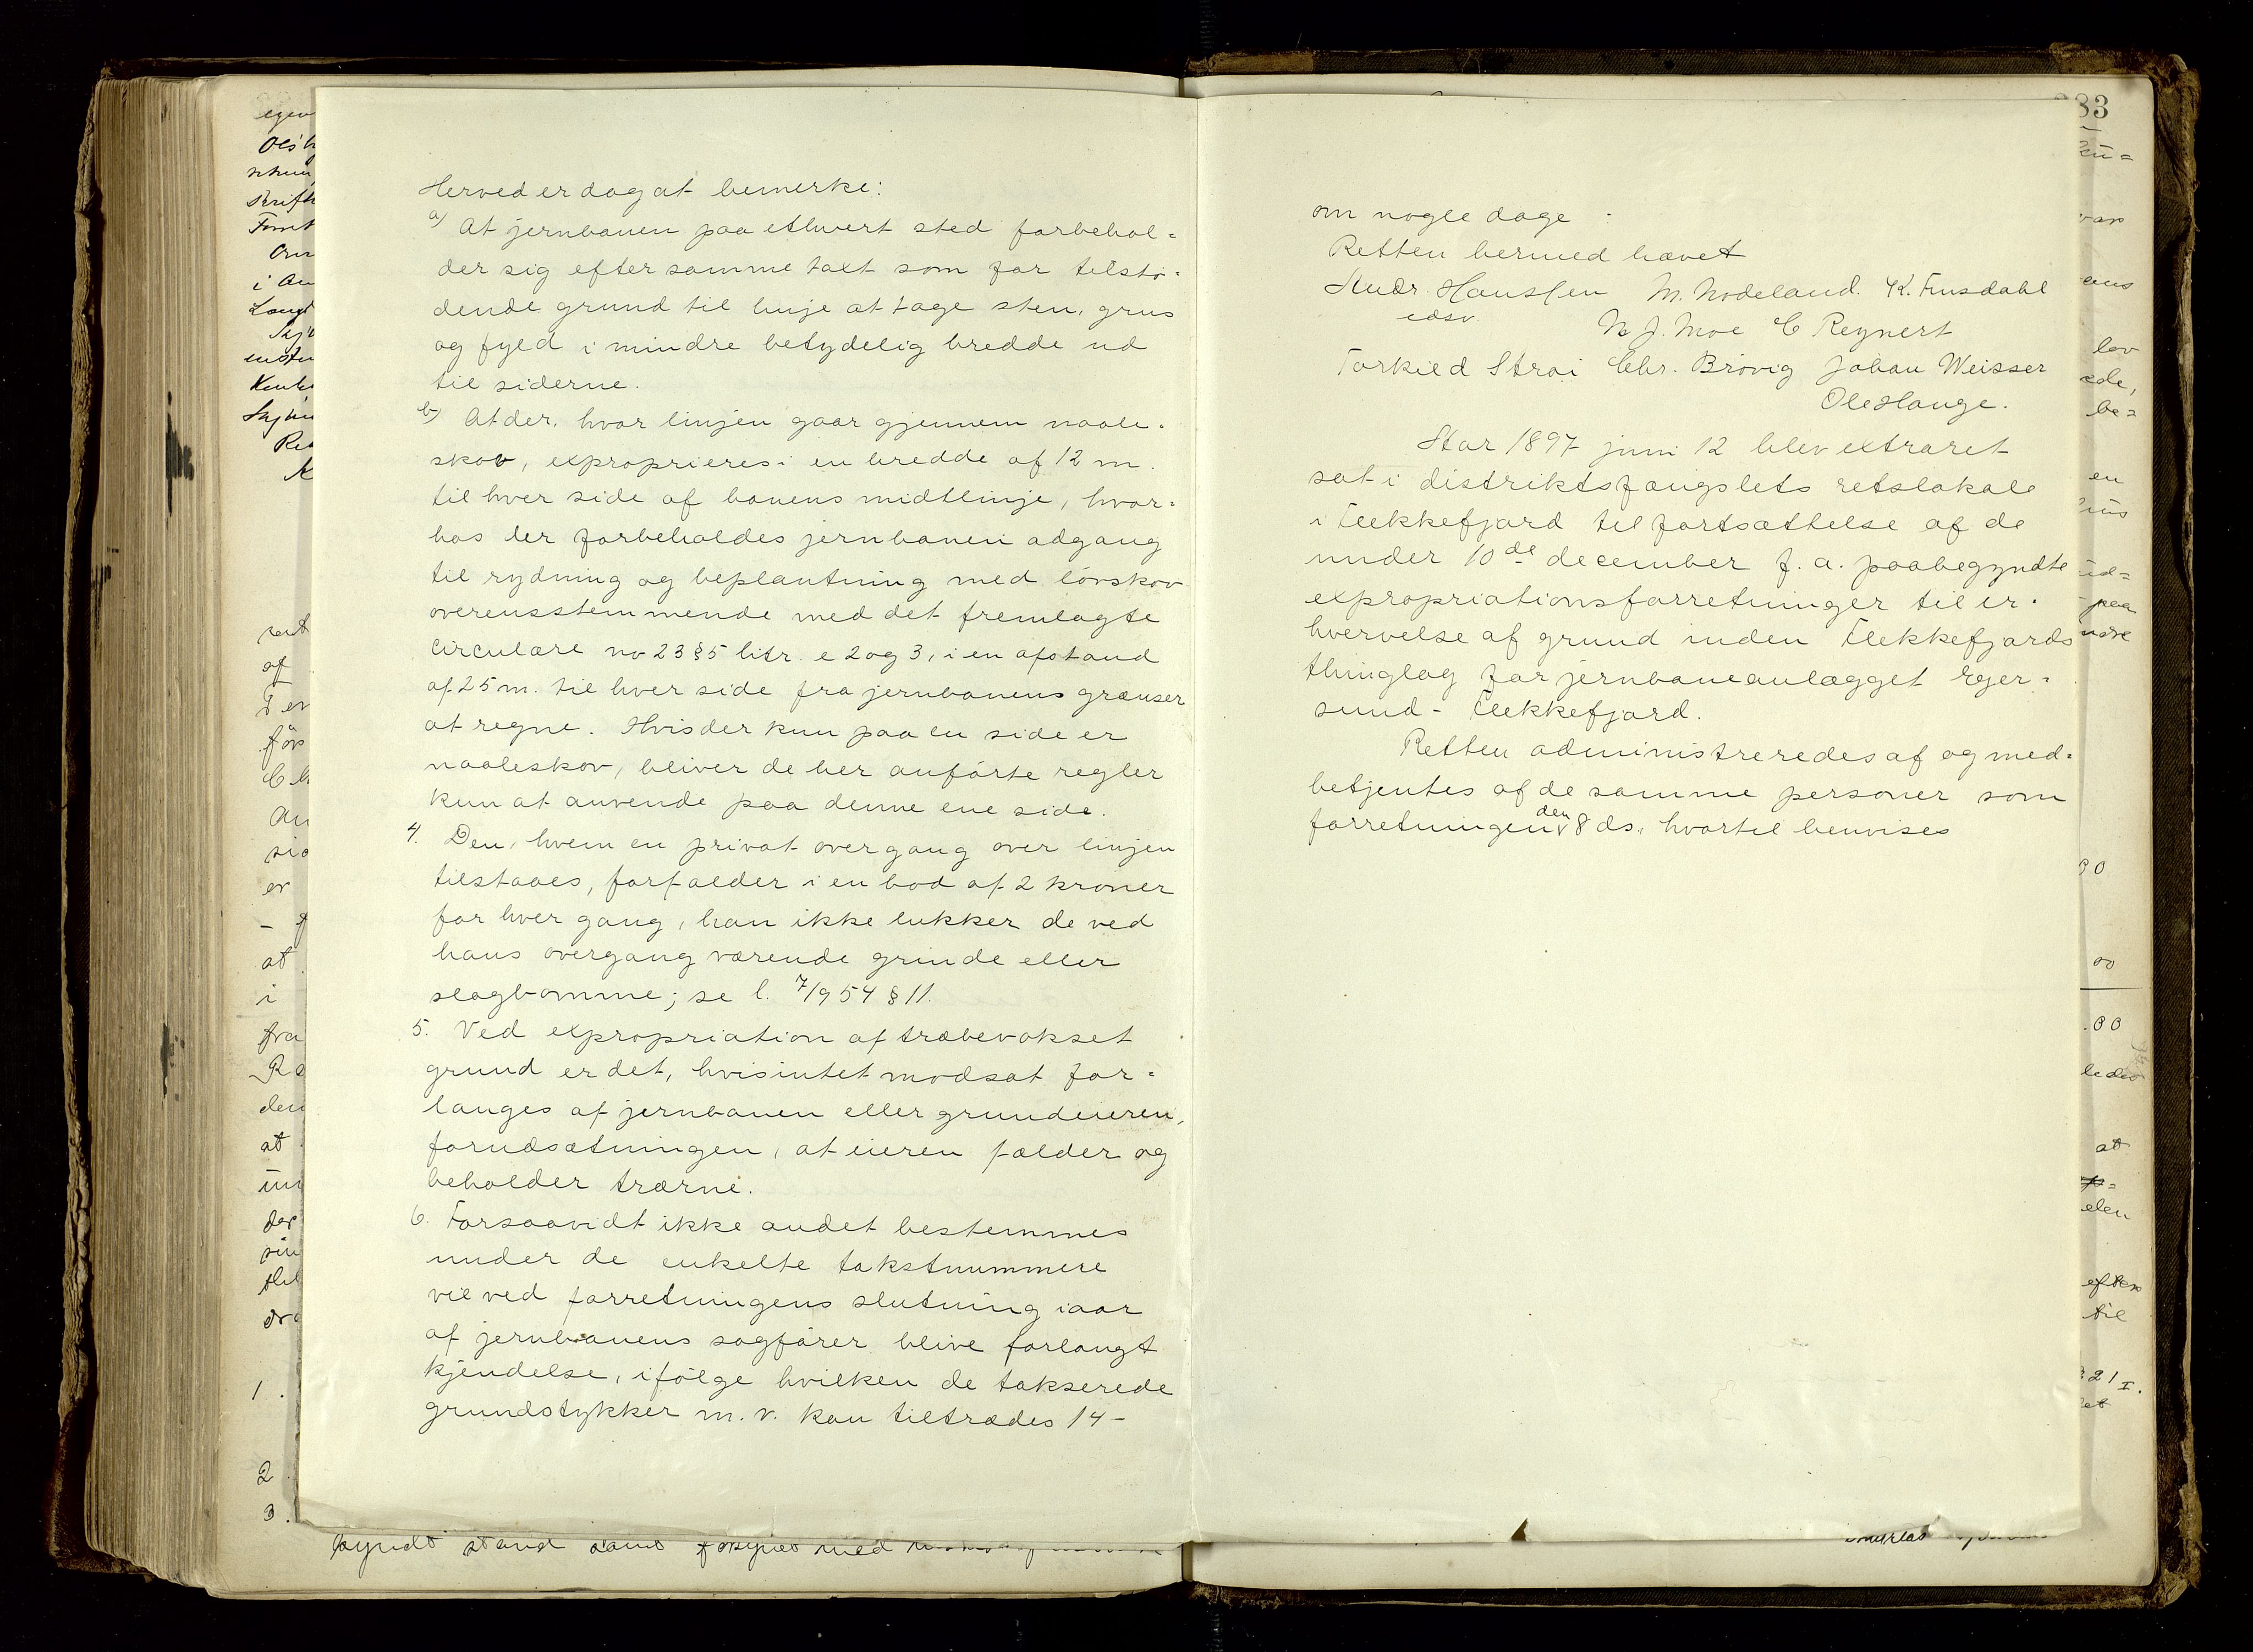 Herved er dog at bemerke:
a) At jernbanen paa ethvert sted forbehol=
der sig efter samme taxt som for tilstö=
dende grund til linje at tage sten, grus
og fyld i mindre betydelig bredde ud
til siderne.
b) At der, hvor linjen gaar gjennem naale=
skov, exproprieres i en bredde af 12 m.
til hver side af banens midtlinje, hvor=
hos der forbeholdes jernbanen adgang
til rydning og beplantning med lövskov
overensstemmende med det fremlagte
circulære no 23 § 5 litr. e 2 og 3, i en afstand
af 25 m. til hver side fra jernbanens grænser
at regne. Hvis der kun paa en side er
naaleskov, bliver de her anförte regler
kun at anvende paa denne ene side.
4. Den, hvem en privat overgang over linjen
tilstaaes, forfalder i en bod af 2 kroner
for hver gang, han ikke lukker de ved
hans overgang værende grinde eller
slagbomme; se l. 7/9 54 § 11.
5. Ved expropriation af træbevokset
grund er det, hvis intet modsat for=
langes af jernbanen eller grundeieren,
forudsætningen, at eieren fælder og
beholder trærne.
6. Forsaavidt ikke andet bestemmes
under de enkelte takstnummere
vil ved forretningens slutning iaar
af jernbanens sagförer blive forlangt
kjendelse, ifölge hvilken de takserede
grundstykker m. v. kan tiltrædes 14-
383
om nogle dage -
Retten hermed hævet
Andr. Hanssen M. Nodeland. K. Finsdahl
edsv. N. J. Moe C Reynert
Torkild Stroi Chr. Brövig Johan Weisser
Ole Hauge.
Aar 1897 juni 12 blev extraret
sat i distriktsfængslets retslokale
i Flekkefjord til fortsættelse af de
under 10de december f. a. paabegyndte
expropriationsforretninger til er=
hvervelse af grund inden Flekkefjords
thinglag for jernbaneanlægget Eger=
sund - Flekkefjord.
Retten administreredes af og med=
betjentes af de samme personer som
forretningen den 8 ds., hvortil henvises